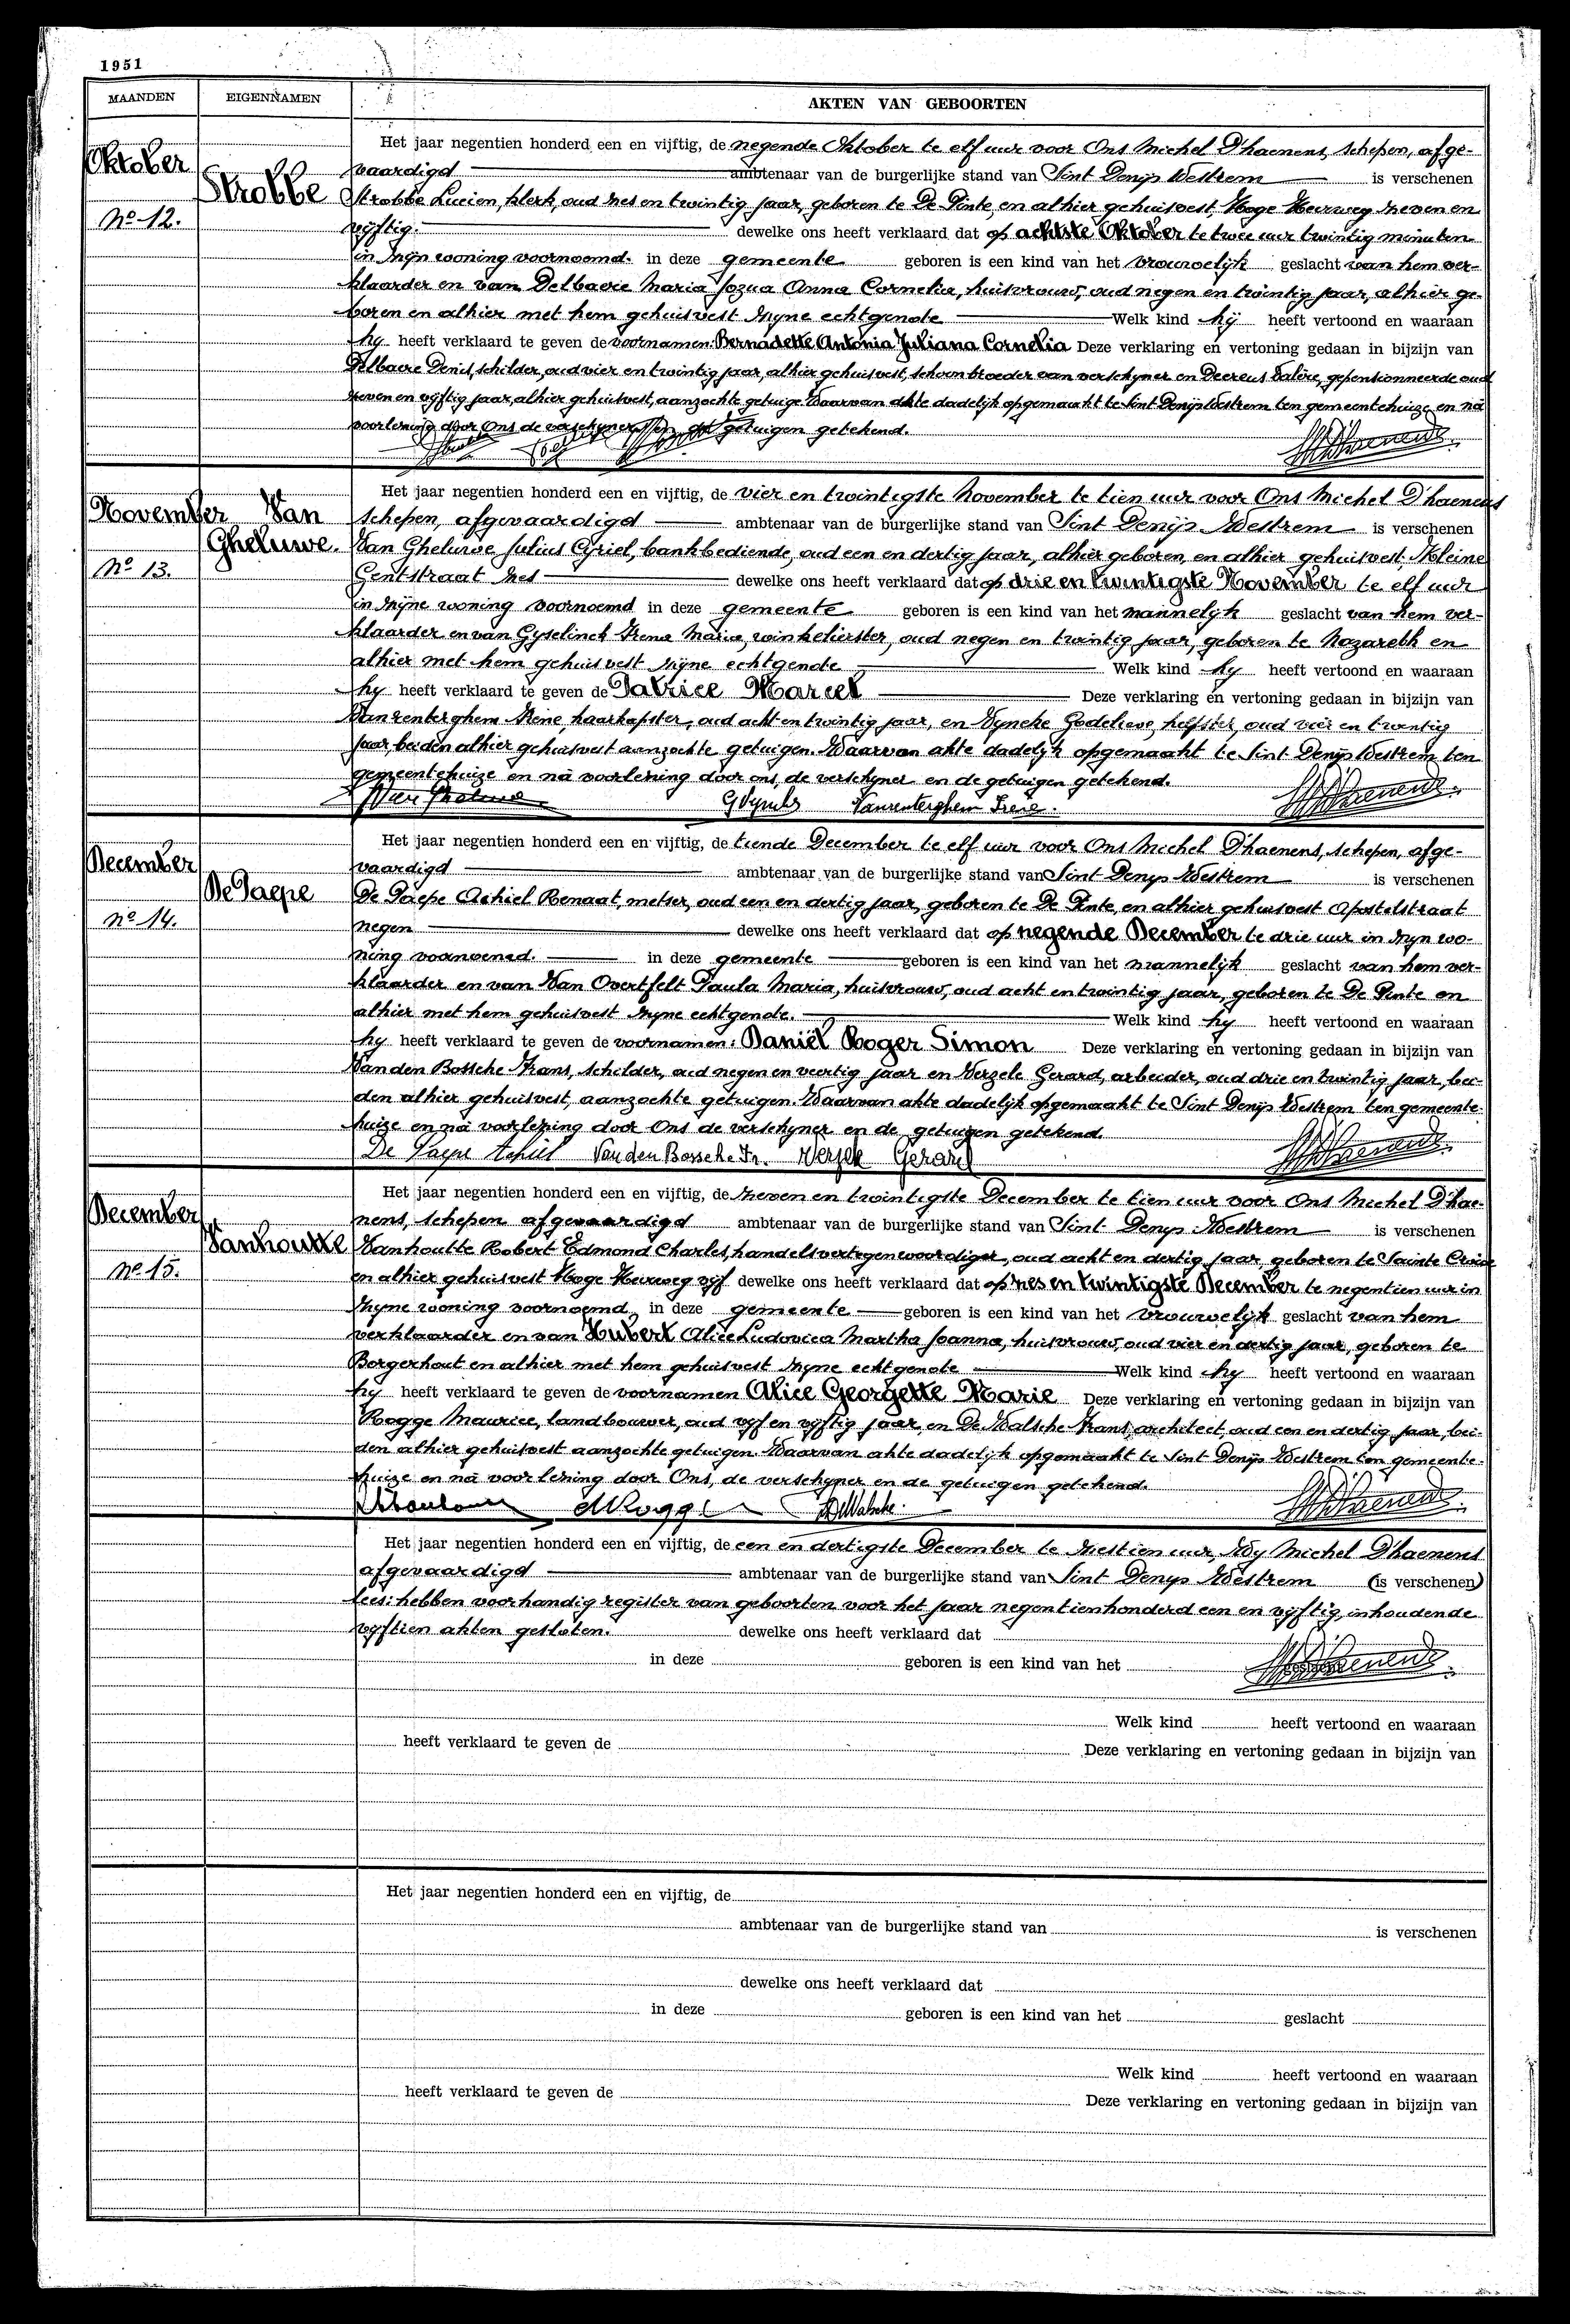 1951
MAANDEN EIGENNAMEN AKTEN VAN GEBOORTEN
Oktober
Strobbe
No 12.
Het jaar negentien honderd een en vijftig, de negende Oktober te elf uur voor Ons Michel D'haenens, schepen, afge-
vaardigd ambtenaar van de burgerlijke stand van Sint Denijs Westrem is verschenen
Strobbe Lucien, klerk, oud zes en twintig jaar, geboren te De Pinte, en alhier gehuisvest, Hoge Heerweg zeven en
vijftig. dewelke ons heeft verklaard dat op achtste Oktober te twee uur twintig minuten
in zijn woning voornoemd. in deze gemeente geboren is een kind van het vrouwelijk geslacht van hem ver-
klaarder en van Delbaere Maria Jozua Anna Cornelia, huisvrouw, oud negen en twintig jaar, alhier ge-
boren en alhier met hem gehuisvest zijne echtgenote Welk kind hij heeft vertoond en waaraan
hij heeft verklaard te geven de voornamen: Bernadette Antonia Juliana Cornelia Deze verklaring en vertoning gedaan in bijzijn van
Delbaere Denis, schilder, oud vier en twintig jaar, alhier gehuisvest, schoonbroeder van verschijner en Deereus Valère, gepensionneerde oud
zeven en vijftig jaar, alhier gehuisvest, aanzochte getuige Waarvan akte dadelijk opgemaakt te Sint Denijs Westrem ten gemeentehuize en nà
voorlezing door Ons de verschijner en de getuigen getekend.
November Van
Gheluwe.
No 13.
Het jaar negentien honderd een en vijftig, de vier en twintigste November te tien uur voor Ons Michel D'haenens
schepen, afgevaardigd ambtenaar van de burgerlijke stand van Sint Denijs Westrem is verschenen
Van Gheluwe Julius Cyriel, bankbediende, oud een en dertig jaar, alhier geboren, en alhier gehuisvest, Kleine
Gentstraat zes dewelke ons heeft verklaard dat op drie en twintigste November te elf uur
in zijne woning voornoemd in deze gemeente geboren is een kind van het mannelijk geslacht van hem ver-
klaarder en van Gyselinck Irena Maria, winkelierster, oud negen en twintig jaar, geboren te Nazareth en
alhier met hem gehuisvest zijne echtgenote Welk kind hij heeft vertoond en waaraan
hij heeft verklaard te geven de Patrice Marcel Deze verklaring en vertoning gedaan in bijzijn van
Vanrenterghem Irène, haarkapster, oud acht en twintig jaar, en Wyncke Godelieve, helpster, oud vier en twintig
jaar, beiden alhier gehuisvest aanzochte getuigen. Waarvan akte dadelijk opgemaakt te Sint Denijs Westrem ten
gemeentehuize en nà voorlezing door ons, de verschijner en de getuigen getekend.
Vanrenterghem Irene.
December
De Paepe
No 14.
Het jaar negentien honderd een en vijftig, de tiende December te elf uur voor Ons Michel D'haenens, schepen, afge-
vaardigd ambtenaar van de burgerlijke stand van Sint Denys Westrem is verschenen
De Paepe Achiel Renaat, metser, oud een en dertig jaar, geboren te De Pinte, en alhier gehuisvest Apostelstraat
negen dewelke ons heeft verklaard dat op negende December te drie uur in zijn wo-
ning voornoemd. in deze gemeente geboren is een kind van het mannelijk geslacht van hem ver-
klaarder en van Van Overtfelt Paula Maria, huisvrouw, oud acht en twintig jaar, geboren te De Pinte en
alhier met hem gehuisvest zijne echtgenote. Welk kind hij heeft vertoond en waaraan
hij heeft verklaard te geven de voornamen: Daniël Roger Simon Deze verklaring en vertoning gedaan in bijzijn van
Van den Bossche Frans, schilder, oud negen en veertig jaar en Verzele Gerard, arbeider, oud drie en twintig jaar, bei-
den alhier gehuisvest, aanzochte getuigen. Waarvan akte dadelijk opgemaakt te Sint Denijs Westrem ten gemeente-
huize en nà voorlezing door Ons de verschijner en de getuigen getekend.
De Paepe Achiel Van den Bossche Fr. Verzele Gerard
December
Vanhoutte
No 15.
Het jaar negentien honderd een en vijftig, de zeven en twintigste December te tien uur voor Ons Michel D'hae-
nens, schepen afgevaardigd ambtenaar van de burgerlijke stand van Sint Denys Westrem is verschenen
Vanhoutte Robert Edmond Charles, handelsvertegenwoordiger, oud acht en dertig jaar, geboren te Sainte Croix
en alhier gehuisvest Hoge Heerweg vijf dewelke ons heeft verklaard dat op zes en twintigste December te negentien uur in
zijne woning voornoemd in deze gemeente geboren is een kind van het vrouwelijk geslacht van hem
verklaarder en van Hubert Alice Ludovica Martha Joanna, huisvrouw, oud vier en dertig jaar, geboren te
Borgerhout en alhier met hem gehuisvest zijne echtgenote Welk kind hij heeft vertoond en waaraan
hij heeft verklaard te geven de voornamen Alice Georgette Marie Deze verklaring en vertoning gedaan in bijzijn van
Rogge Maurice, landbouwer, oud vijf en vijftig jaar, en De Walsche Frans, architect, oud een en dertig jaar, bei-
den alhier gehuisvest aanzochte getuigen. Waarvan akte dadelijk opgemaakt te Sint Denijs Westrem ten gemeente-
huize en nà voorlezing door Ons, de verschijner en de getuigen getekend.
MRogge DeWalsche.
Het jaar negentien honderd een en vijftig, de een en dertigste December te zestien uur, Wij Michel D'haenens
afgevaardigd ambtenaar van de burgerlijke stand van Sint Denys Westrem (is verschenen)
lees: hebben voorhandig register van geboorten voor het jaar negentienhonderd een en vijftig, inhoudende
vijftien akten gesloten. dewelke ons heeft verklaard dat
in deze geboren is een kind van het
Welk kind heeft vertoond en waaraan
heeft verklaard te geven de Deze verklaring en vertoning gedaan in bijzijn van
Het jaar negentien honderd een en vijftig, de
ambtenaar van de burgerlijke stand van is verschenen
dewelke ons heeft verklaard dat
in deze geboren is een kind van het geslacht
Welk kind heeft vertoond en waaraan
heeft verklaard te geven de Deze verklaring en vertoning gedaan in bijzijn van